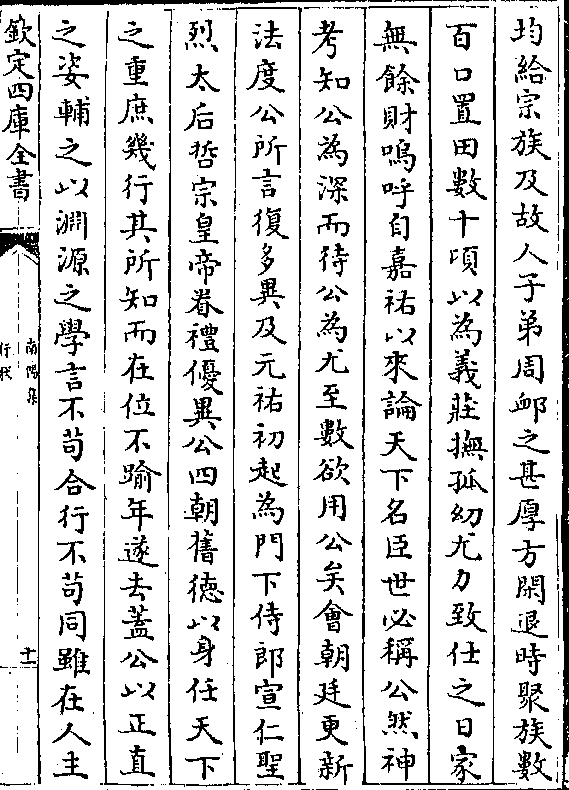 均給宗族及故人子弟周卹之甚厚方閑退時聚族數
百口置田數十頃以為義莊撫孤幼尤力致仕之日家
無餘財嗚呼自嘉祐以來論天下名臣世必稱公然神
考知公為深而待公為尤至數欲用公矣會朝廷更新
法度公所言復多異及元祐初起為門下侍郎宣仁聖
烈太后哲宗皇帝眷禮優異公四朝舊德以身任天下
之重庶幾行其所知而在位不踰年遂去蓋公以正直
之姿輔之以淵源之學言不苟合行不苟同雖在人主
欽定四庫全書
南陽集
行狀
十一